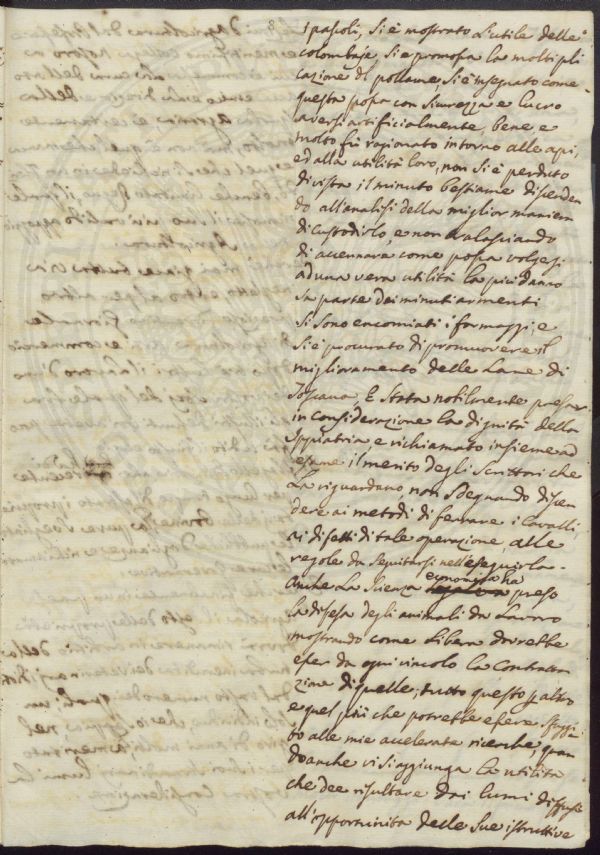 8
i pascoli, si è mostrato l'utile delle
colombaje, si è promossa la moltipli
cazione di pollame si è insegnato come
questa possa con sicurezza e lucro
aversi artificialmente, bene e
molto fù ragionato intorno alle api,
ed alla utilità loro, non si è perduto
di vista il minuto bestiame discenden
do all'analisi della miglior maniera
di custodirlo, e non tralasciando
di accennare come possa volgesi
ad una vera utilità la più danno
sa parte dei minuti armenti
si sono encomiati i formaggi, e
si è procurato di promuovere il
miglioramento delle Lane di
Toscana, È stata nobilmente presa
in considerazione la dignità della
Ippiatria e richiamato insieme ad
esame il merito degli Scrittori che
La riguardano, non sdegnando discen
dere ai metodi di ferrare i Cavalli,
ai difetti di tale operazione, alle
regole da seguitarsi nell'eseguirla.
economica ha
Anche La Scienza preso
la difesa degli animali da Lavoro
mostrando come Libera dovrebbe
esser da ogni vincolo la Contratta
zione di quelle; tutto questo
e quel più che potrebbe essere sfuggi
to alle mie accelerate ricerche, quan
do anche vi si aggiunga la utilità
che dee risultare dai lumi diffusi
all'opportunità delle sue istruttive